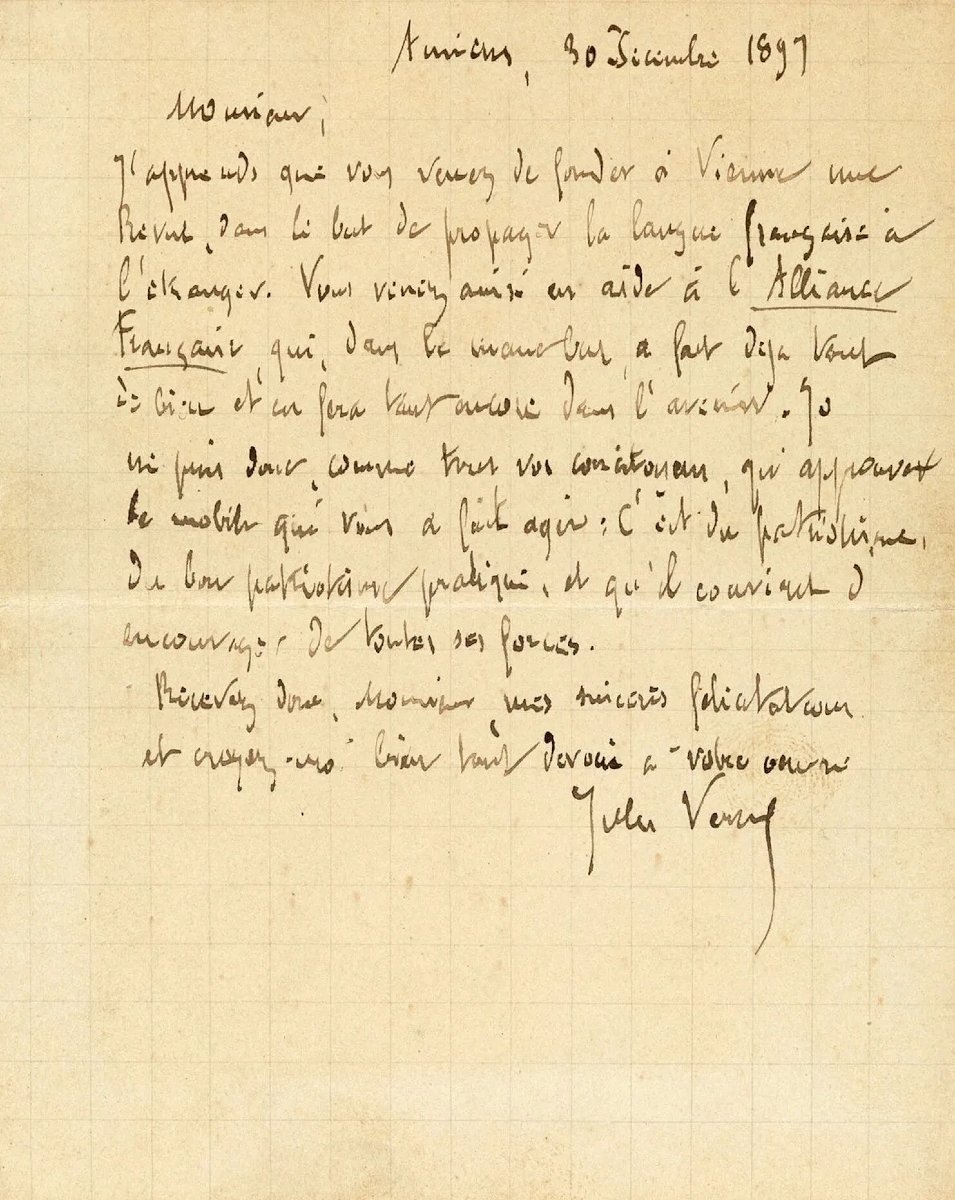 Amiens, 30 Décembre 1897
Monsieur,
J'apprends que vous venez de fonder à Vienne une
Revue, dans le but de propager la langue française à
l'étranger. Vous venez ainsi en aide à l'Alliance
Française, qui, dans le même but, a fait déjà tant
de bien et en fera tant encore dans l'avenir. Je
ne puis donc, comme tous vos concitoyens, qu'approuver
le mobile qui vous a fait agir : C'est du patriotisme,
du bon patriotisme pratique, et qu'il convient d'
encourager de toutes ses forces.
Recevez donc, Monsieur, mes sincères félicitations
et croyez-moi bien tout dévoué à votre œuvre
Jules Verne